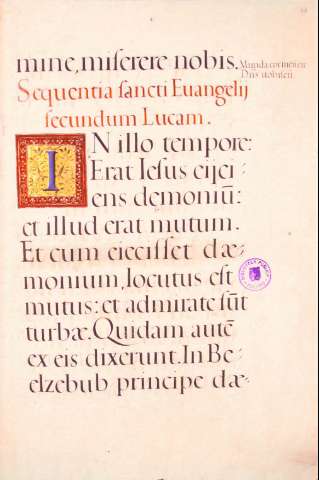 mine, miserere nobis.
Munda cor meum
Dns
Sequentia sancti Euangelij
secundum Lucam.
IN illo tempore:
Erat Iesus eijci-
ens demoniũ:
et illud erat mutum.
Et cum eiecisset dæ-
monium, locutus est
mutus: et admiratæ sũt
turbæ. Quidam autẽ
ex eis dixerunt. In Be-
elzebub principe dæ-